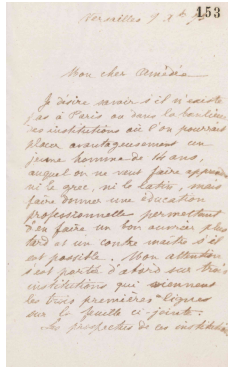 153
Versailles 9 Xbre
Mon cher Amédée
Je désire savoir s'il n'existe
pas à Paris ou dans la banlieue
des institutions où l'on pourrait
placer avantageusement un
jeune homme de 14 ans,
auquel on ne veut faire apprendre
ni le grec, ni le latin, mais
faire donner une éducation
professionnelle permettant
d'en faire un bon ouvrier plus
tard et un contre maître s'il
est possible. Mon attention
s'est porté d'abord sur trois
institutions qui viennent
les trois premières lignes
sur la feuille ci-jointe.
Les prospectus de ces institutions